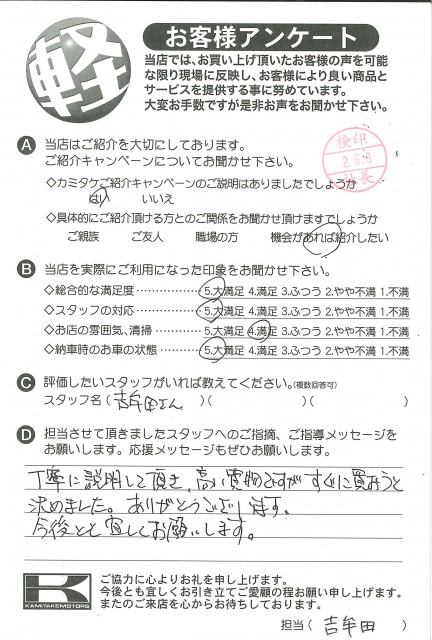 軽
お客様アンケート
当店では、お買い上げ頂いたお客様の声を可能
な限り現場に反映し、お客様により良い商品と
サービスを提供する事に努めています。
大変お手数ですが是非お声をお聞かせ下さい。
A 当店はご紹介を大切にしております。
ご紹介キャンペーンについてお聞かせ下さい。
検印
2.6.8
社長
◇カミタケご紹介キャンペーンのご説明はありましたでしょうか
はい いいえ
◇具体的にご紹介頂ける方とのご関係をお聞かせ頂けますでしょうか
ご親族 ご友人 職場の方 機会があれば紹介したい
B 当店を実際にご利用になった印象をお聞かせ下さい。
◇総合的な満足度……………5.大満足 4.満足 3.ふつう 2.やや不満 1.不満
◇スタッフの対応……………5.大満足 4.満足 3.ふつう 2.やや不満 1.不満
◇お店の雰囲気、清掃………5.大満足 4.満足 3.ふつう 2.やや不満 1.不満
◇納車時のお車の状態………5.大満足 4.満足 3.ふつう 2.やや不満 1.不満
C 評価したいスタッフがいれば教えてください。(複数回答可)
スタッフ名(吉牟田さん)( )( )
D 担当させて頂きましたスタッフへのご指摘、ご指導メッセージを
お願いします。応援メッセージもぜひお願いします。
丁寧に説明して頂き、高い買物ですがすぐに買おうと
決めました。ありがとうございます。
今後とも宜しくお願いします。
K
KAMITAKEMOTORS
ご協力に心よりお礼を申し上げます。
今後とも宜しくお引き立てご愛顧の程お願い申し上げます。
またのご来店を心からお待ちしております。
担当(吉牟田)